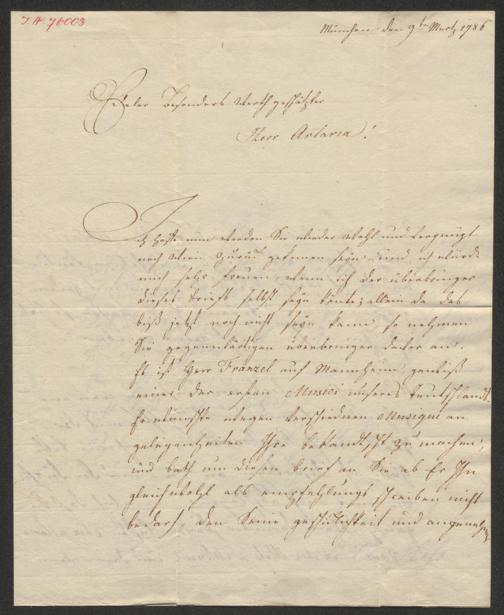 I.N. 76003
München den 9ten Mertz 1786
Edler besonders Werthgeschätzter
Herr Artaria!
Ich hoffe nun werden Sie wieder wohl und vergnügt
nach Wien zurück gekomen seyn. und ich würde
mich sehr freuen, wenn ich der überbringer
dieses briefs selbst seyn könte; allein da das
biß jetzt noch nicht seyn kann, so nehmen
Sie gegenwärtigen überbringer dafür an.
Er ist Herr Fränzel aus Mannheim gewiß
einer der ersten Musici unseres Teutschlandts
Er wünschte wegen verschiednen Musique an
gelegenheiten Ihre bekandtschft zu machen,
und bath um diesen brief an Sie ob Er Ihn
gleichwohl als empfehlungs schreiben nicht
bedarf, den Seine geschicklichkeit und angenehme